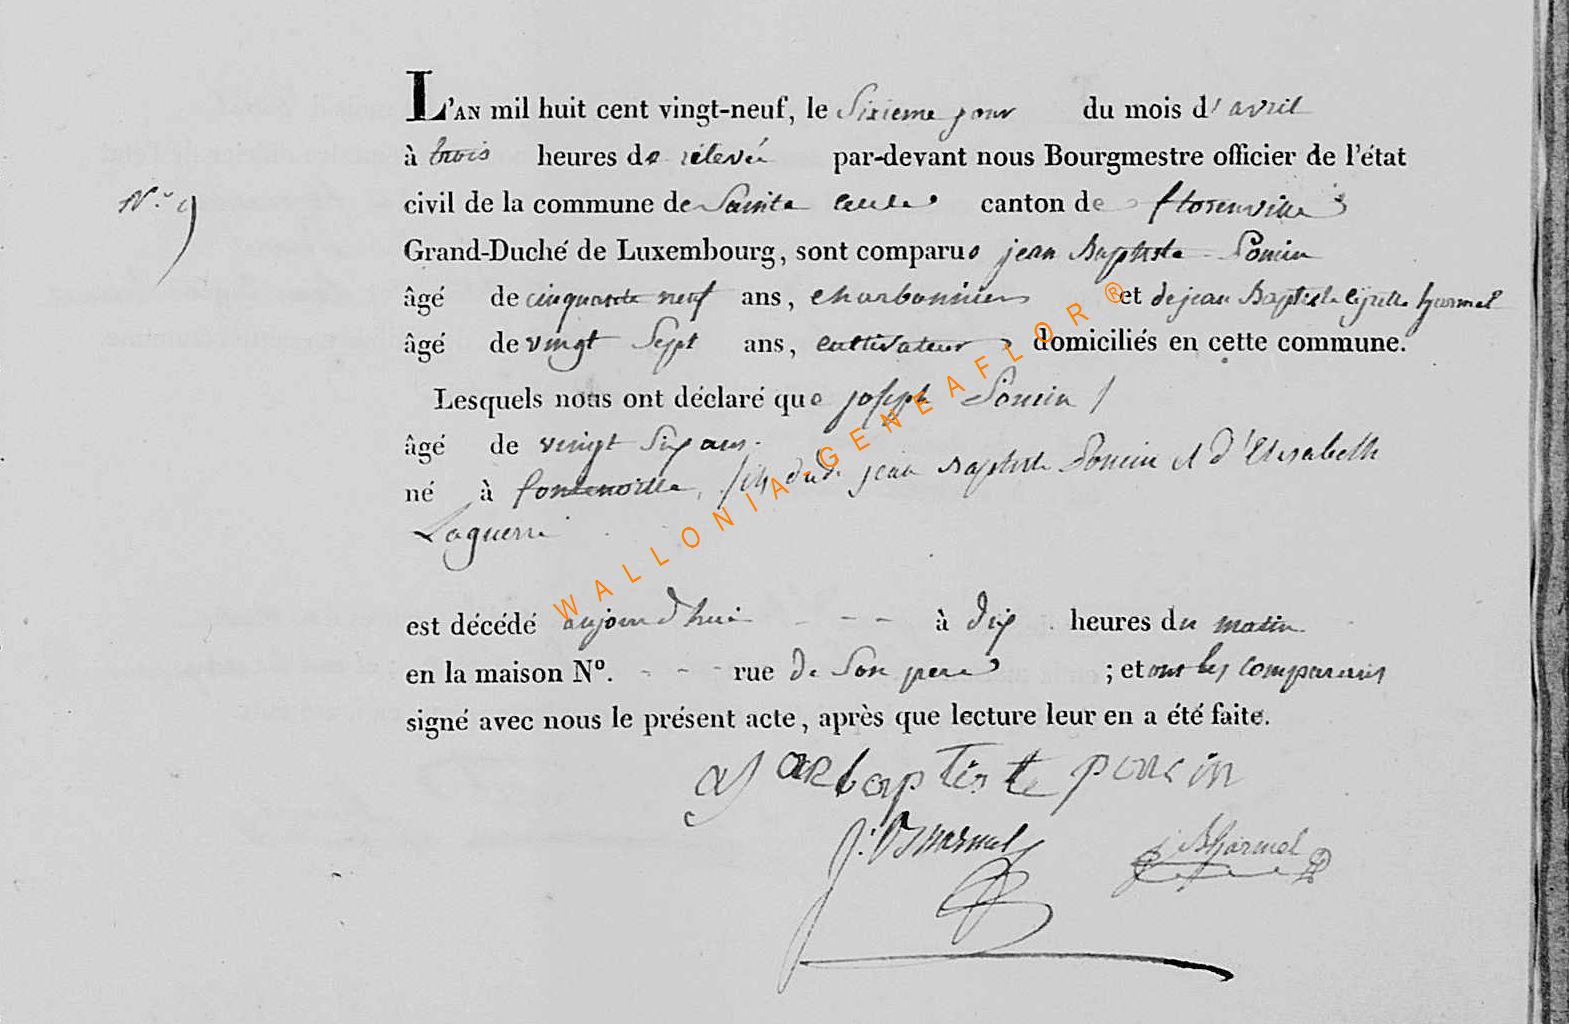 L'AN mil huit cent vingt-neuf, le Sixieme jour du mois d'avril
à trois heures de relevée par-devant nous Bourgmestre officier de l'état
N.° 9 civil de la commune de Sainte Cecile canton de florenville
Grand-Duché de Luxembourg, sont comparus jean Baptiste Poncin
âgé de cinquante neuf ans, charbonnier et de jean Baptiste hyarmel
âgé de vingt Sept ans, cultivateur domiciliés en cette commune.
Lesquels nous ont déclaré que joseph Poncin
âgé de vingt Six ans.
né à fontenoille, fils dudt jean Baptiste Poncin et d'Elisabeth
Laguerre
est décédé aujourd'hui - - - à dix heures du matin
en la maison N°. - - - rue de Son pere ; et ont les comparants
signé avec nous le présent acte, après que lecture leur en a été faite.
jean baptiste poncin
WALLONIA-GENEAFLOR®